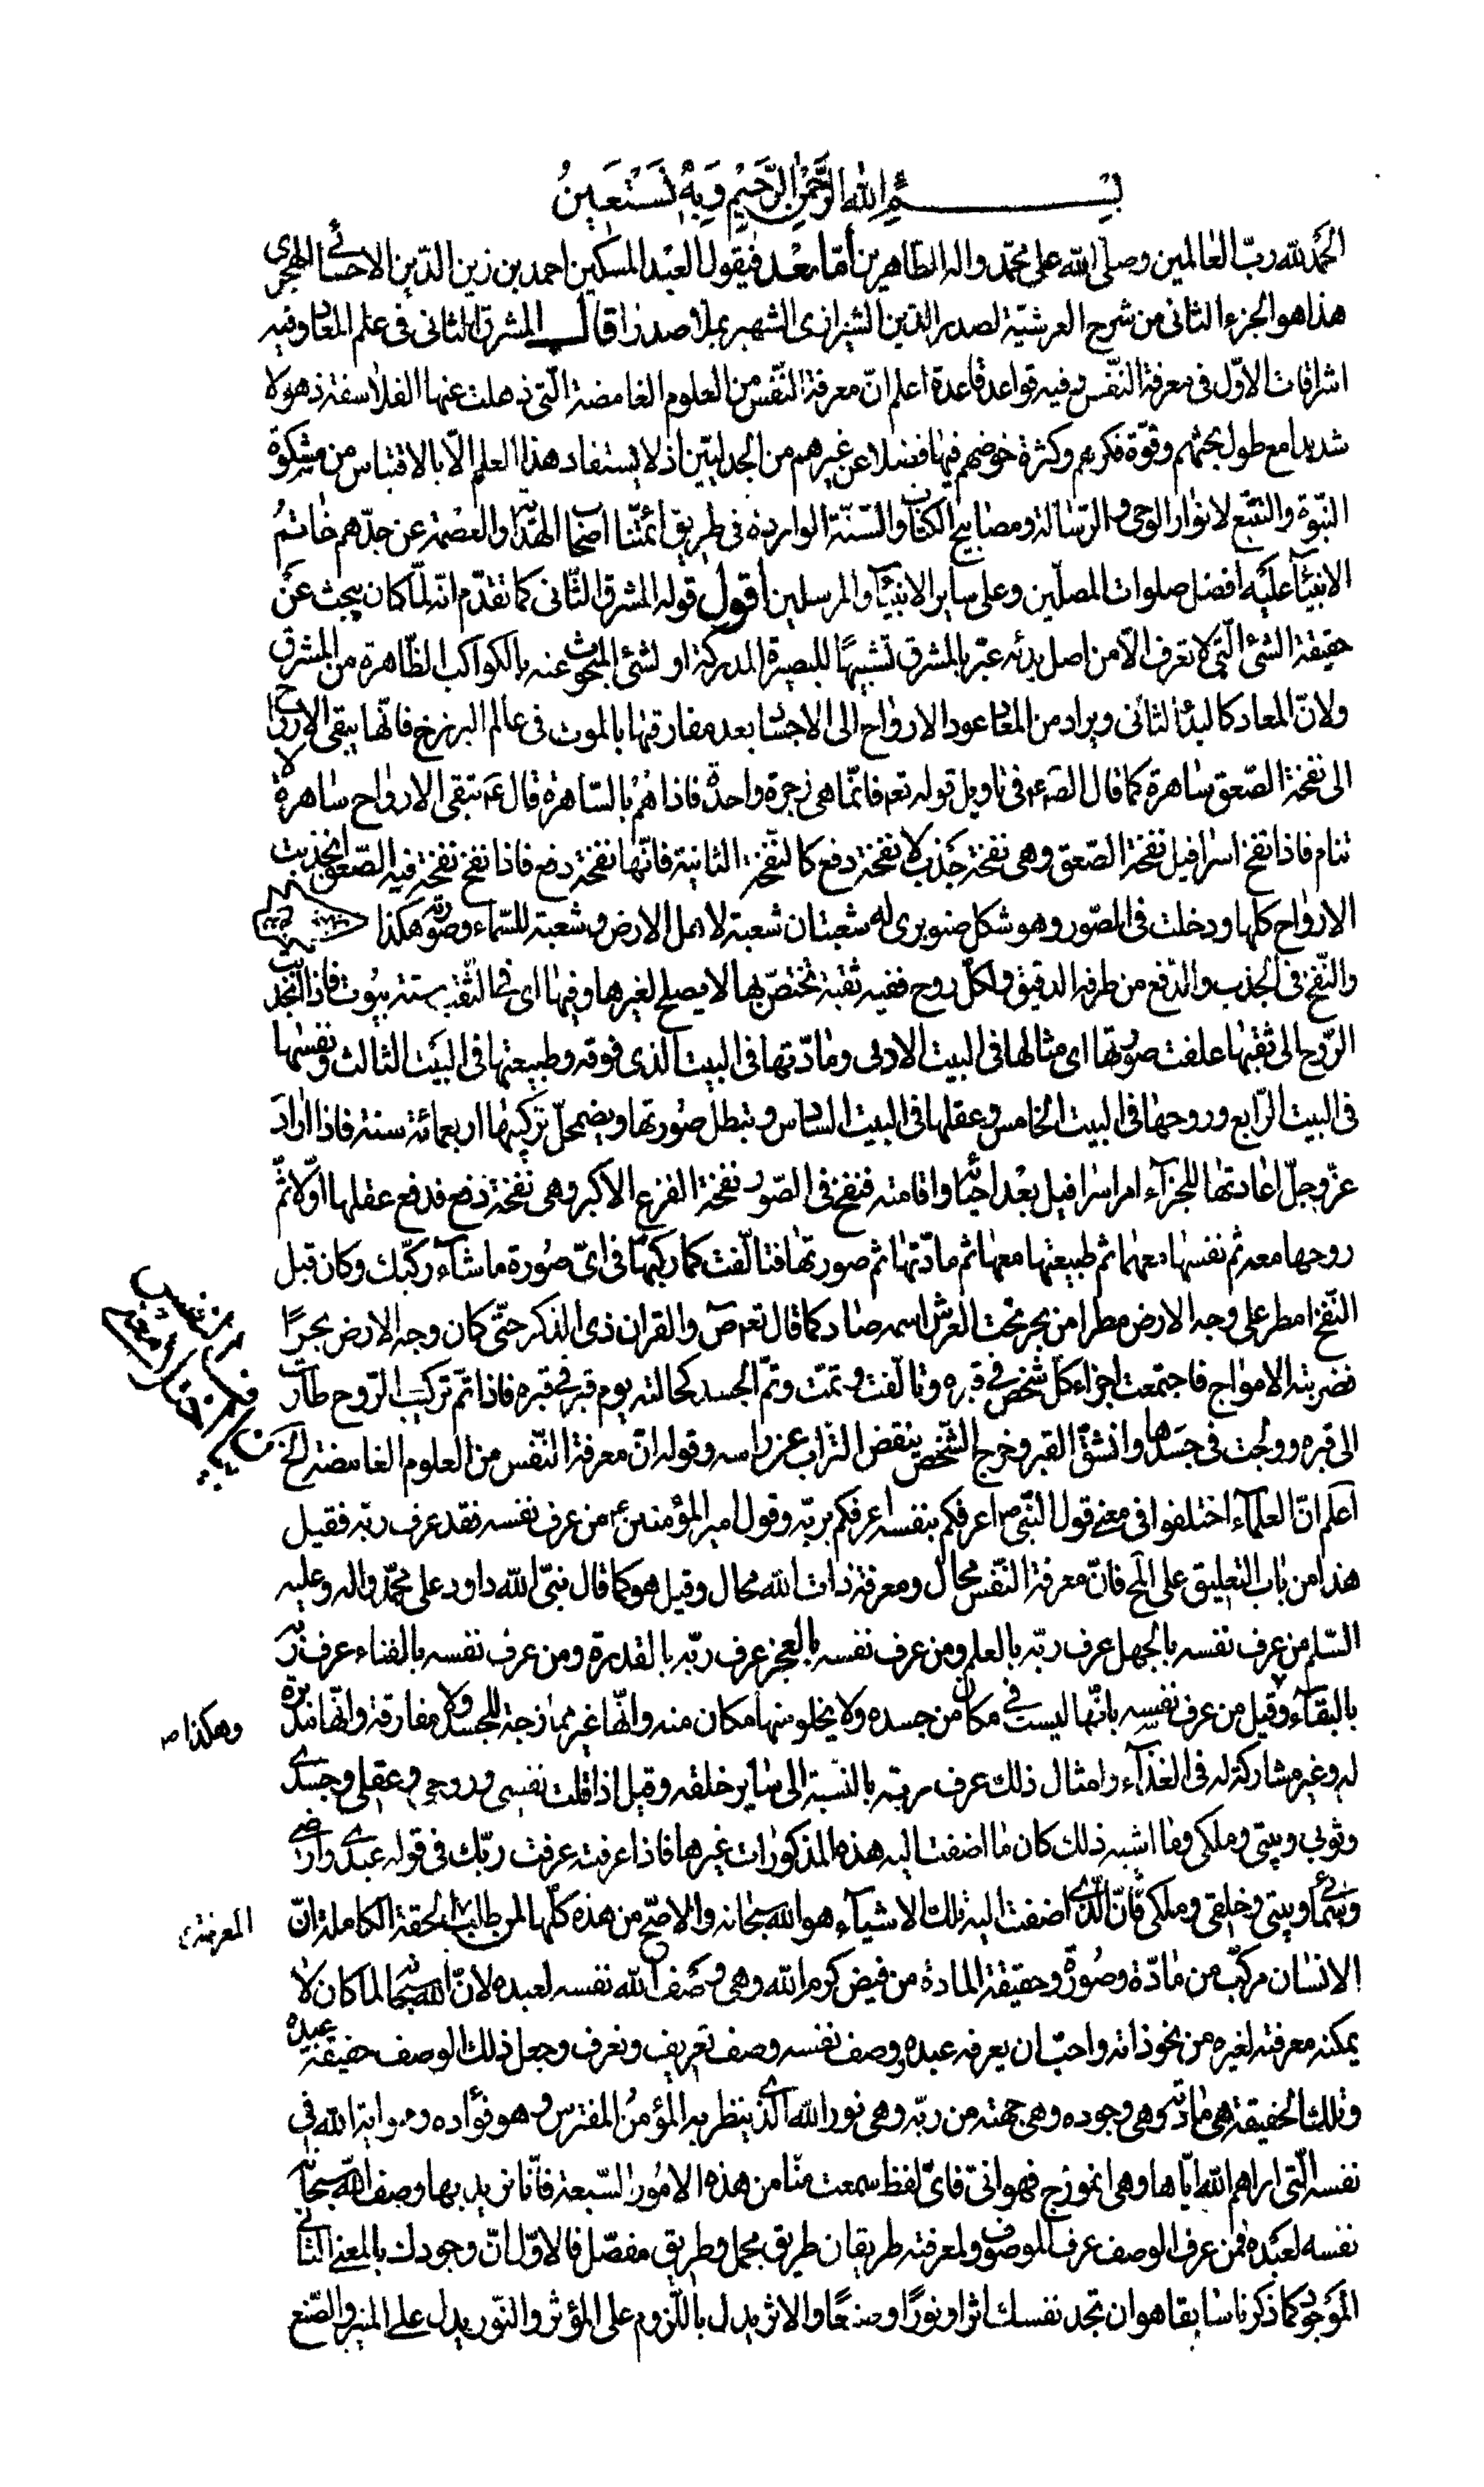 بسم الله الرحمن الرحيم وبه نستعين
الحمد لله رب العالمين وصلى الله على محمد واله الطاهرين أما بعد فيقول العبد المسكين احمد بن زين الدين الاحسائي الهجرى
هذا هو الجزء الثانى من شرح العرشية لصدر الدين الشيرازى الشهير بملا صدرا قال المشرق الثانى فى علم المعاد وفيه
اشراقات الاول فى معرفة النفس وفيه قواعد قاعدة اعلم ان معرفة النفس من العلوم الغامضة التى ذهلت عنها الفلاسفة ذهولا
شديدا مع طول بحثهم وقوة فكرهم وكثرة خوضهم فيها فضلا عن غيرهم من الجدليين اذ لا يستفاد هذا العلم الا بالاقتباس من مشكوة
النبوة والتتبع لانوار الوحى والرسالة ومصابيح الكتاب والسنة الواردة فى طريق ائمتنا اصحاب الهداية والعصمة عن جدهم خاتم
الانبياء عليه افضل صلوات المصلين وعلى ساير الانبياء والمرسلين أقول قوله المشرق الثانى كما تقدم انه لما كان يبحث عن
حقيقة الشئ التى لا تعرف الا من اصل بدئه عبر بالمشرق تشبيها للبصيرة المدركة او لشئ المبحوث عنه بالكواكب الظاهرة من المشرق
ولان المعاد كالبدأ الثانى ويراد من المعاد عود الارواح الى الاجساد بعد مفارقتها بالموت فى عالم البرزخ فانها يبقى الارواح
الى نفخة الصعق ساهرة كما قال الصّ ع فى تاويل قوله تع فانما هى زجرة واحدة فاذا هم بالساهرة قال ع تبقى الارواح ساهرة لا
تنام فاذا نفخ اسرافيل نفخة الصعق وهى نفخة جذب لا نفخة دفع كالنفخة الثانية فانها نفخة دفع فاذا نفخ نفخة فيه الصعق انجذبت
الارواح كلها ودخلت فى الصور وهو شكل صنوبرى له شعبتان شعبة لاهل الارض وشعبة للسماء وصورته هكذا
والنفخ فى الجذب والدفع من طرفه الدقيق ولكل روح ففيه ثقبة تختص بها لا يصلح لغيرها وفيها اى فى الثقبة ستة بيوت فاذا انجذبت
الروح الى ثقبها علقت صورتها اى مثالها فى البيت الاولى ومادتها فى البيت الذى فوقه وطبيعتها فى البيت الثالث ونفسها
فى البيت الرابع وروحها فى البيت الخامس وعقلها فى البيت السادس وتبطل صورتها ويضمحل تركيبها اربعمائة سنة فاذا اراد
عز وجل اعادتها للجزاء امر اسرافيل بعد احيائه واقامته فنفخ فى الصور نفخة الفزع الاكبر وهى نفخة دفع فدفع عقلها اولا ثم
روحها معه ثم نفسها معهما ثم طبيعتها معها ثم مادتها ثم صورتها فتالفت كما ركبها فى اى صورة ما شاء ركبك وكان قبل
النفخ امطر على وجه الارض مطرا من بحر تحت العرش اسمه صاد كما قال تع ص والقران ذى الذكر حتى كان وجه الارض بحرا
فضربته الامواج فاجتمعت اجزاء كل شخص فى قبره وتالفت وتمت وتم الجسد كحالته يوم قبر فى قبره فاذا تم تركيب الروح طارت
الى قبره وولجت فى جسدها وانشق القبر وخرج الشخص ينفض التراب عن راسه وقوله ان معرفة النفس من العلوم الغامضة الخ
اعلم ان العلماء اختلفوا فى معنى قول النبى ص اعرفكم بنفسه اعرفكم بربه وقول امير المؤمنين ع من عرف نفسه فقد عرف ربه فقيل
هذا من باب التعليق على المح فان معرفة النفس محال ومعرفة ذات الله محال وقيل هو كما قال نبى الله داود على محمد واله وعليه
السلم من عرف نفسه بالجهل عرف ربه بالعلم ومن عرف نفسه بالعجز عرف ربه بالقدرة ومن عرف نفسه بالفناء عرف ربه
بالبقاء وقيل من عرف نفسه بانها ليست فى مكان من جسده ولا يخلو منها مكان منه وانها غير ممازجة للجسد ولا مفارقة وانها مدبرة
وهكذا صه
له وغير مشاركة له فى الغذاء وامثال ذلك عرف ربه بالنسبة الى ساير خلقه وقيل اذا قلت نفسى وروحى وعقلى وجسدى
وثوبى وبيتى وملكى وما اشبه ذلك كان ما اضفت اليه هذه المذكورات غيرها فاذا عرفته عرفت ربك فى قوله عبدى وارضى
وسمائى وبيتى وخلقى وملكى فان الذى اضفت اليه تلك الاشياء هو الله سبحانه والاصح من هذه كلها لمن طالب الحقة الكاملة ان
المعرفة
الانسان مركب من مادة وصورة وحقيقة المادة من فيض كرم الله وهى وصف الله نفسه لعبده لان الله سبحانه لما كان لا
يمكنه معرفته لغيره من نحو ذاته واحب ان يعرفه عبده وصف نفسه وصف تعريف وتعرف وجعل ذلك الوصف حقيقة عبده
وتلك الحقيقة هى مادته وهى وجوده وهى جهته من ربه وهى نور الله الذى ينظر به المؤمن المتفرس وهو فؤاده وهو اية الله فى
نفسه التى اراهم الله اياها وهى انموذج فهوانى فاى لفظ سمعت منا من هذه الامور السبعة فانا نريد بها وصف الله سبحانه
نفسه لعبده فمن عرف الوصف عرف الموصوف ولمعرفته طريقان طريق مجمل وطريق مفصل فالاول ان وجودك بالمعنى الثانى
الموجود كما ذكرنا سابقا هو ان تجد نفسك اثرا ونورا وصنعا والاثر يدل باللزوم على المؤثر والنور يدل على المنير والصنع